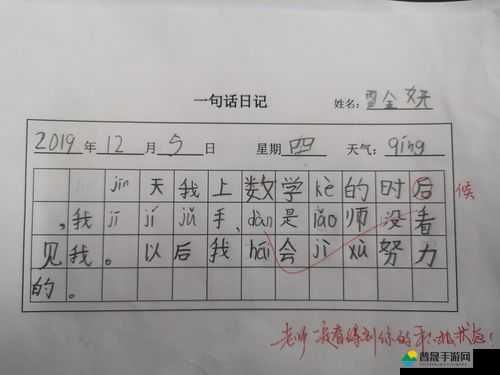 一句话日记
姓名：雪金妍
2019年12月5日 星期四 天气：qíng
jīn天我上数学kè的时后
候
，我jī jí jǔ手，dàn是lǎo师没看
见我。以后我hái会jì xù努力
的。
老师一定看得到你的
普晟手游网